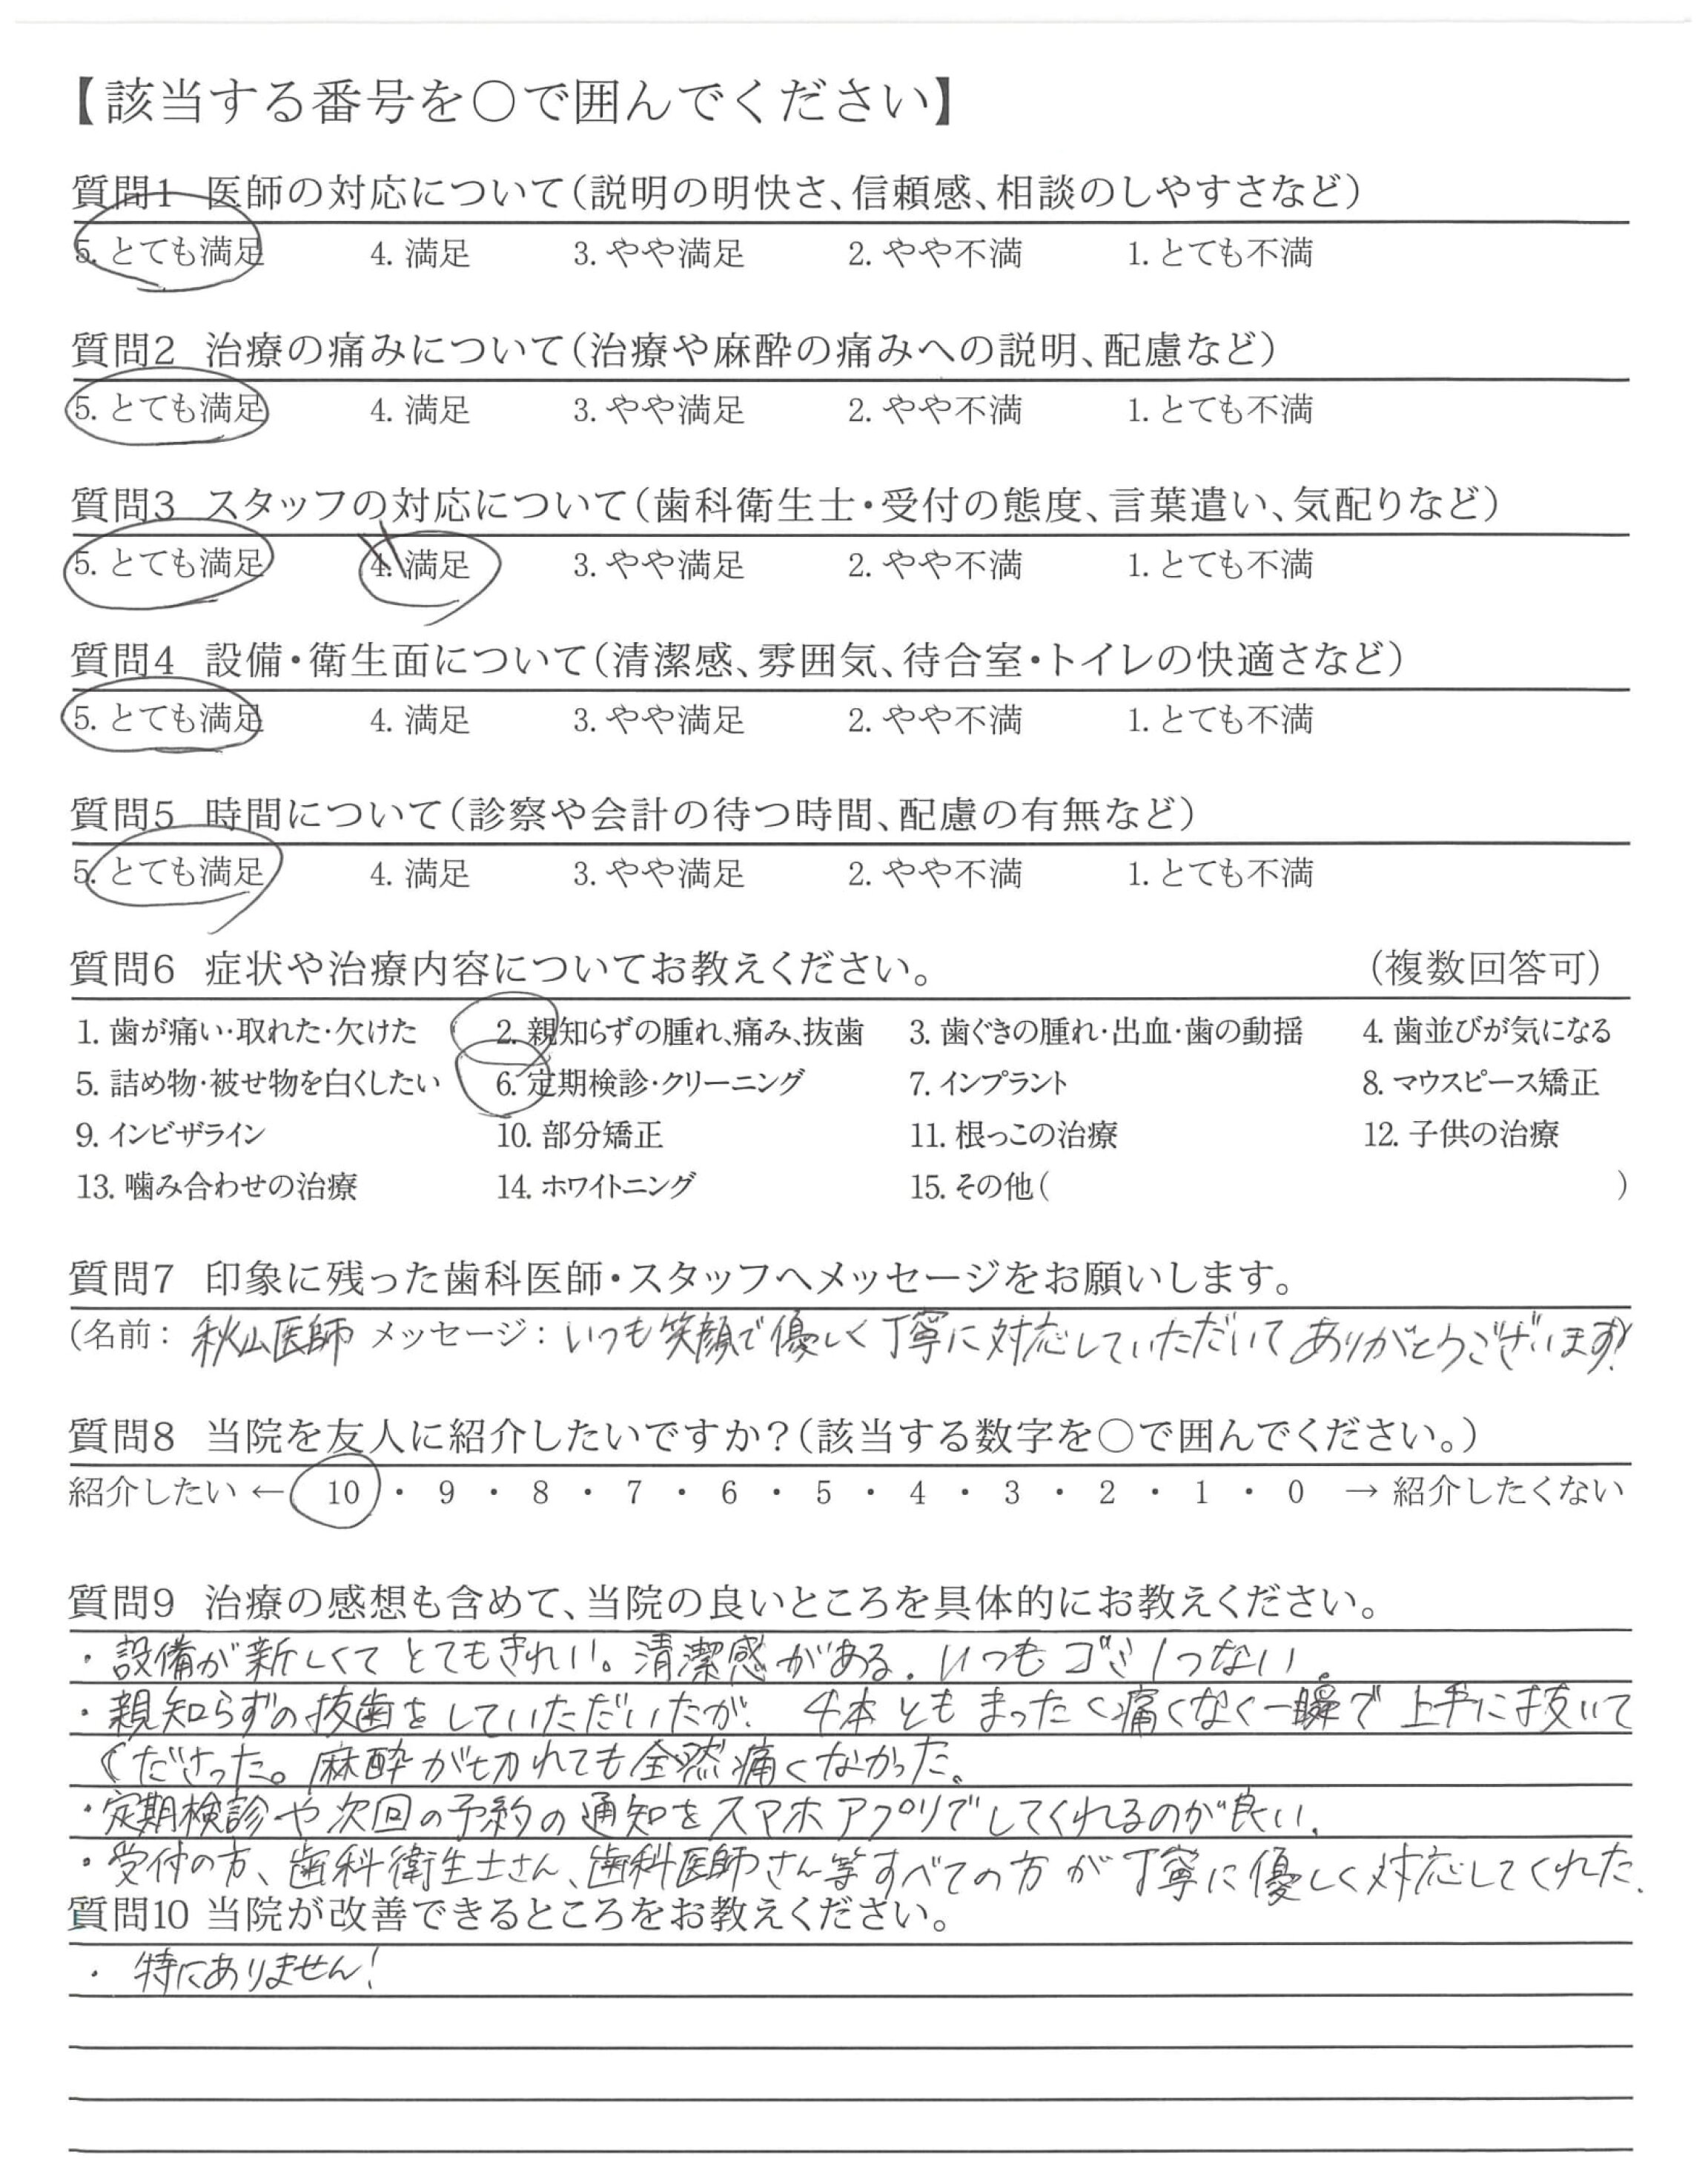 【該当する番号を〇で囲んでください】
質問1 医師の対応について(説明の明快さ、信頼感、相談のしやすさなど)
5. とても満足 4. 満足 3. やや満足 2. やや不満 1. とても不満
質問2 治療の痛みについて(治療や麻酔の痛みへの説明、配慮など)
5. とても満足 4. 満足 3. やや満足 2. やや不満 1. とても不満
質問3 スタッフの対応について(歯科衛生士・受付の態度、言葉遣い、気配りなど)
5. とても満足 4. 満足 3. やや満足 2. やや不満 1. とても不満
質問4 設備・衛生面について(清潔感、雰囲気、待合室・トイレの快適さなど)
5. とても満足 4. 満足 3. やや満足 2. やや不満 1. とても不満
質問5 時間について(診察や会計の待つ時間、配慮の有無など)
5. とても満足 4. 満足 3. やや満足 2. やや不満 1. とても不満
質問6 症状や治療内容についてお教えください。 (複数回答可)
1. 歯が痛い・取れた・欠けた 2. 親知らずの腫れ、痛み、抜歯 3. 歯ぐきの腫れ・出血・歯の動揺 4. 歯並びが気になる
5. 詰め物・被せ物を白くしたい 6. 定期検診・クリーニング 7. インプラント 8. マウスピース矯正
9. インビザライン 10. 部分矯正 11. 根っこの治療 12. 子供の治療
13. 噛み合わせの治療 14. ホワイトニング 15. その他( )
質問7 印象に残った歯科医師・スタッフへメッセージをお願いします。
(名前: 秋山医師 メッセージ: いつも笑顔で優しく丁寧に対応していただいてありがとうございます!)
質問8 当院を友人に紹介したいですか?(該当する数字を〇で囲んでください。)
紹介したい ← 10 ・ 9 ・ 8 ・ 7 ・ 6 ・ 5 ・ 4 ・ 3 ・ 2 ・ 1 ・ 0 → 紹介したくない
質問9 治療の感想も含めて、当院の良いところを具体的にお教えください。
・設備が新しくてとてもきれい。清潔感がある。いつもゴミ1つない。
・親知らずの抜歯をしていただいたが、4本ともまったく痛くなく一瞬で上手に抜いて
くださった。麻酔が切れても全然痛くなかった。
・定期検診や次回の予約の通知をスマホアプリでしてくれるのが良い。
・受付の方、歯科衛生士さん、歯科医師さん等すべての方が丁寧に優しく対応してくれた。
質問10 当院が改善できるところをお教えください。
・特にありません!